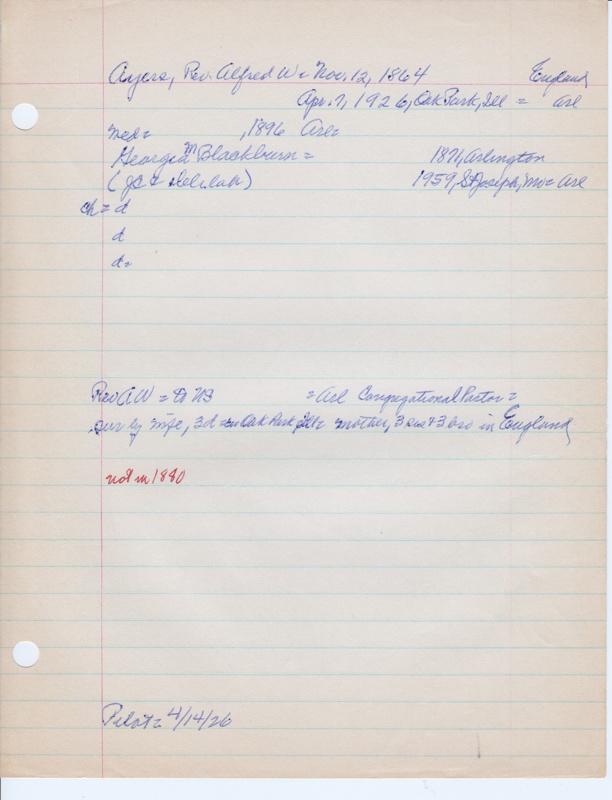 Ayers, Rev. Alfred W = Nov. 12, 1864 England
Apr. 7, 1926, Oak Park, Ill = Arl
med = , 1896 Arl =
Georgia M Blackburn = 1871, Arlington
(JC & Delilah) 1959, St Joseph, Mo = Arl
ch = d
d
d =
Rev AW = to US = Arl Congregational Pastor =
sur by wife, 3d = Oak Park, Ill = mother, 3 sis & 3 bro in England
not in 1880
Pilot = 4/14/26